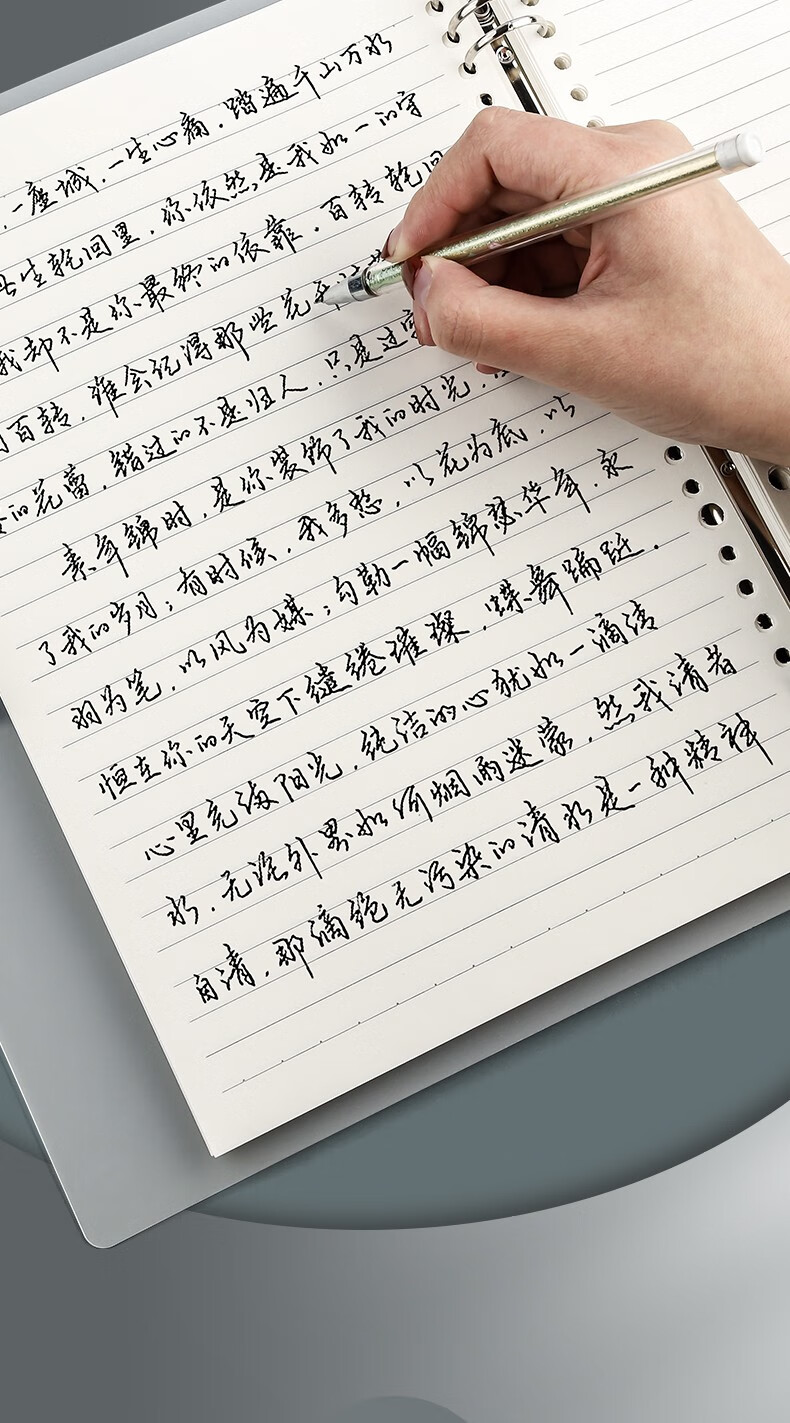 一座城，一生心痛，踏遍千山万水
生轮回里，你依然是我如一的守
我却不是你最终的依靠，百转轮回
百转，谁会记得那些花开
的花蕾，错过的不是归人，只是过客
素年锦时，是你装饰了我的时光，
了我的岁月；有时候，我多想，以花为底，以
羽为笔，以风为媒；勾勒一幅锦瑟华年，永
恒在你的天空下缱绻璀璨，蝶舞蹁跹。
心里充满阳光，纯洁的心犹如一滴清
水，无论外界如何烟雨迷蒙，然我清者
自清，那滴绝无污染的清水是一种精神